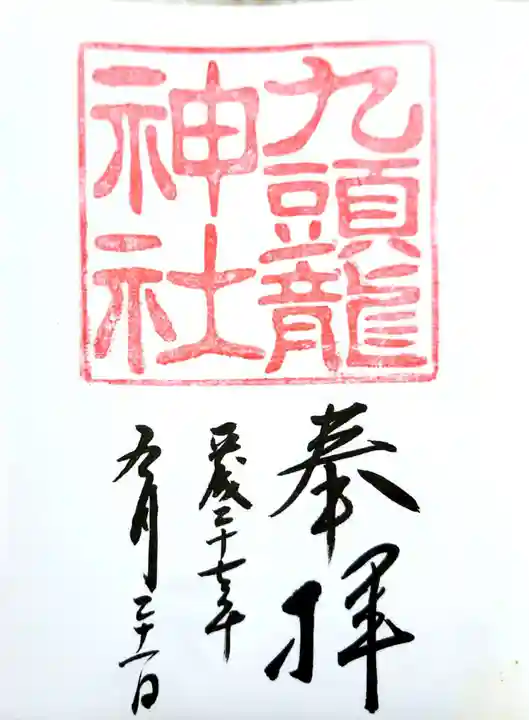 九頭龍
神社
奉拝
平成二十七年
五月三十一日